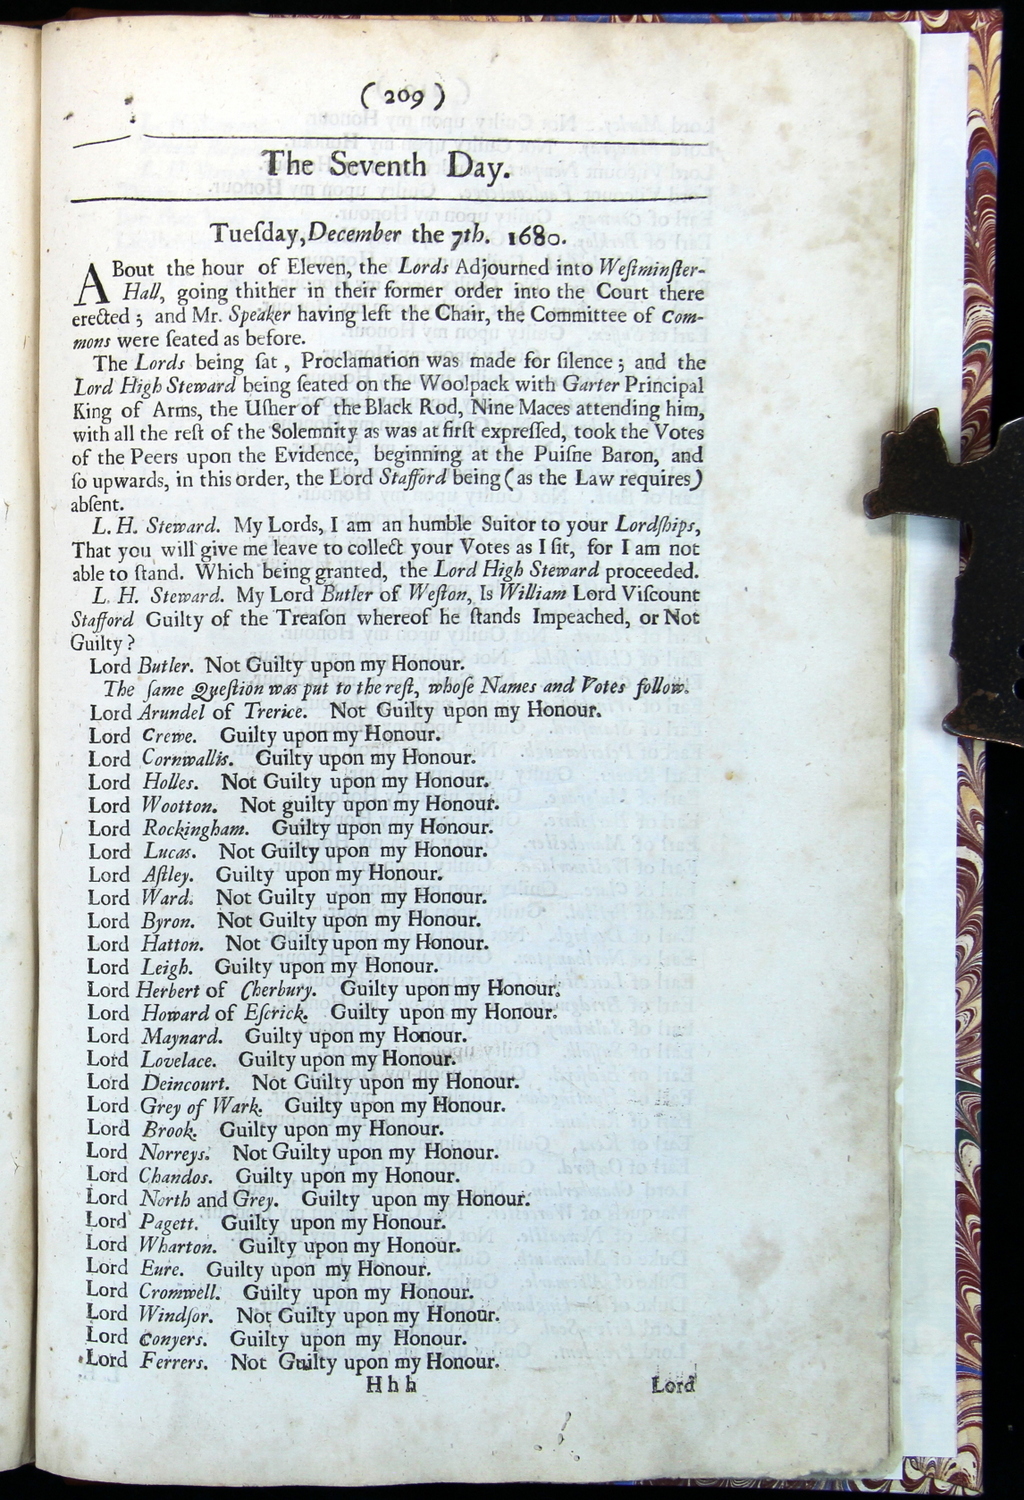 ( 209 )
The Seventh Day.
Tueſday, December the 7th. 1680.
ABout the hour of Eleven, the Lords Adjourned into Weſtminſter-
Hall, going thither in their former order into the Court there
erected; and Mr. Speaker having left the Chair, the Committee of Com-
mons were ſeated as before.
The Lords being ſat, Proclamation was made for ſilence; and the
Lord High Steward being ſeated on the Woolpack with Garter Principal
King of Arms, the Uſher of the Black Rod, Nine Maces attending him,
with all the reſt of the Solemnity as was at firſt expreſſed, took the Votes
of the Peers upon the Evidence, beginning at the Puiſne Baron, and
ſo upwards, in this order, the Lord Stafford being (as the Law requires)
abſent.
L. H. Steward. My Lords, I am an humble Suitor to your Lordſhips,
That you will give me leave to collect your Votes as I ſit, for I am not
able to ſtand. Which being granted, the Lord High Steward proceeded.
L. H. Steward. My Lord Butler of Weſton, Is William Lord Viſcount
Stafford Guilty of the Treaſon whereof he ſtands Impeached, or Not
Guilty?
Lord Butler. Not Guilty upon my Honour.
The ſame Queſtion was put to the reſt, whoſe Names and Votes follow.
Lord Arundel of Trerice. Not Guilty upon my Honour.
Lord Crewe. Guilty upon my Honour.
Lord Cornwallis. Guilty upon my Honour.
Lord Holles. Not Guilty upon my Honour.
Lord Wootton. Not guilty upon my Honour.
Lord Rockingham. Guilty upon my Honour.
Lord Lucas. Not Guilty upon my Honour.
Lord Aſtley. Guilty upon my Honour.
Lord Ward. Not Guilty upon my Honour.
Lord Byron. Not Guilty upon my Honour.
Lord Hatton. Not Guilty upon my Honour.
Lord Leigh. Guilty upon my Honour.
Lord Herbert of Cherbury. Guilty upon my Honour.
Lord Howard of Eſcrick. Guilty upon my Honour.
Lord Maynard. Guilty upon my Honour.
Lord Lovelace. Guilty upon my Honour.
Lord Deincourt. Not Guilty upon my Honour.
Lord Grey of Wark. Guilty upon my Honour.
Lord Brook. Guilty upon my Honour.
Lord Norreys. Not Guilty upon my Honour.
Lord Chandos. Guilty upon my Honour.
Lord North and Grey. Guilty upon my Honour.
Lord Pagett. Guilty upon my Honour.
Lord Wharton. Guilty upon my Honour.
Lord Eure. Guilty upon my Honour.
Lord Cromwell. Guilty upon my Honour.
Lord Windſor. Not Guilty upon my Honour.
Lord Conyers. Guilty upon my Honour.
Lord Ferrers. Not Guilty upon my Honour.
Hhh Lord